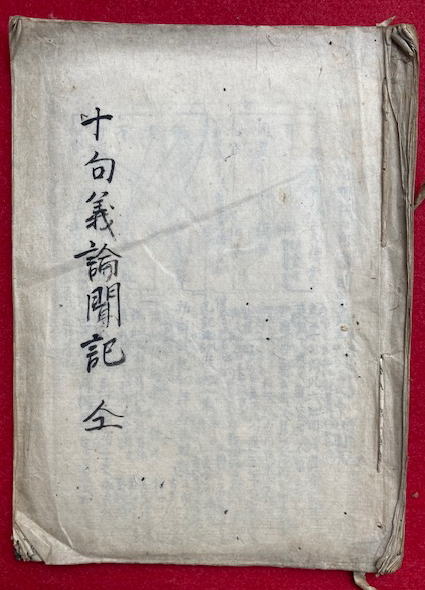 十句義論聞記 仝